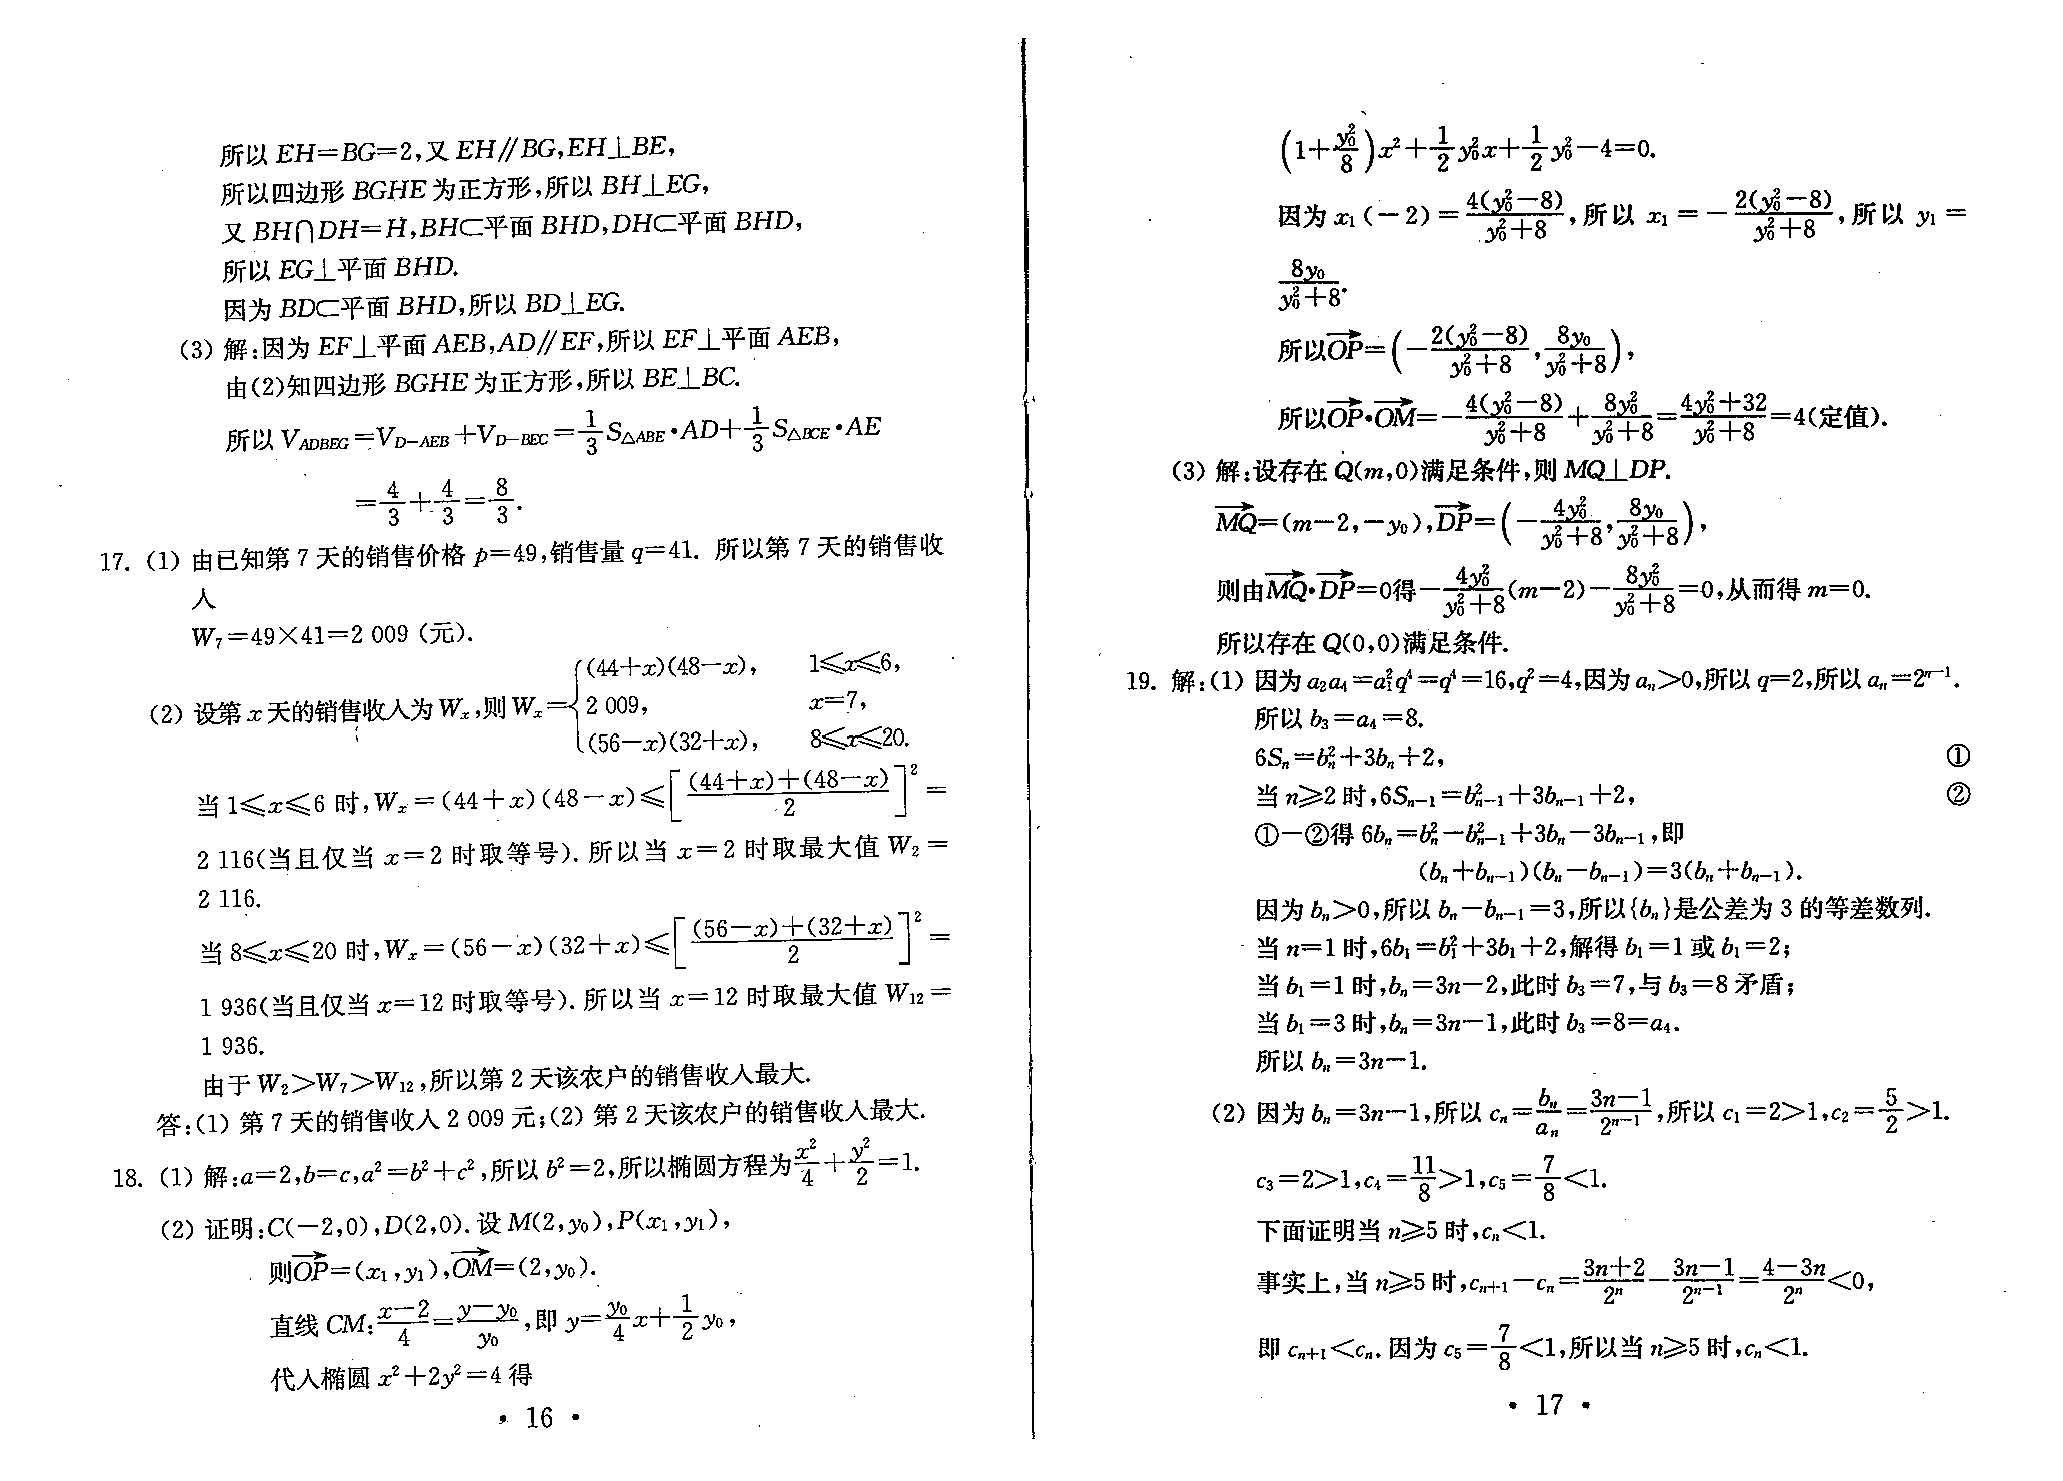 所以 EH=BG=2,又 EH∥BG,EH⊥BE,
所以四边形 BGHE 为正方形,所以 BH⊥EG,
又 BH∩DH=H,BH⊂平面 BHD,DH⊂平面 BHD,
所以 EG⊥平面 BHD.
因为 BD⊂平面 BHD,所以 BD⊥EG.
(3) 解:因为 EF⊥平面 AEB,AD∥EF,所以 EF⊥平面 AEB,
由(2)知四边形 BGHE 为正方形,所以 BE⊥BC.
所以 V_{ADBEG}=V_{D-AEB}+V_{D-BEC}=\frac{1}{3}S_{△ABE}·AD+\frac{1}{3}S_{△BCE}·AE
=\frac{4}{3}+\frac{4}{3}=\frac{8}{3}.
17. (1) 由已知第 7 天的销售价格 p=49,销售量 q=41. 所以第 7 天的销售收
入
W_7=49×41=2 009 (元).
(2) 设第 x 天的销售收入为 W_x,则 W_x=\begin{cases}(44+x)(48-x), & 1≤x≤6,\\ 2 009, & x=7,\\ (56-x)(32+x), & 8≤x≤20.\end{cases}
当 1≤x≤6 时,W_x=(44+x)(48-x)≤[\frac{(44+x)+(48-x)}{2}]^2=
2 116(当且仅当 x=2 时取等号). 所以当 x=2 时取最大值 W_2=
2 116.
当 8≤x≤20 时,W_x=(56-x)(32+x)≤[\frac{(56-x)+(32+x)}{2}]^2=
1 936(当且仅当 x=12 时取等号). 所以当 x=12 时取最大值 W_{12}=
1 936.
由于 W_2>W_7>W_{12},所以第 2 天该农户的销售收入最大.
答:(1) 第 7 天的销售收入 2 009 元;(2) 第 2 天该农户的销售收入最大.
18. (1) 解:a=2,b=c,a^2=b^2+c^2,所以 b^2=2,所以椭圆方程为\frac{x^2}{4}+\frac{y^2}{2}=1.
(2) 证明:C(-2,0),D(2,0). 设 M(2,y_0),P(x_1,y_1),
则\overrightarrow{OP}=(x_1,y_1),\overrightarrow{OM}=(2,y_0).
直线 CM:\frac{x-2}{4}=\frac{y-y_0}{y_0},即 y=\frac{y_0}{4}x+\frac{1}{2}y_0,
代入椭圆 x^2+2y^2=4 得
· 16 ·
(1+\frac{y_0^2}{8})x^2+\frac{1}{2}y_0^2x+\frac{1}{2}y_0^2-4=0.
因为 x_1(-2)=\frac{4(y_0^2-8)}{y_0^2+8},所以 x_1=-\frac{2(y_0^2-8)}{y_0^2+8},所以 y_1=
\frac{8y_0}{y_0^2+8}.
所以\overrightarrow{OP}=(-\frac{2(y_0^2-8)}{y_0^2+8},\frac{8y_0}{y_0^2+8}),
所以\overrightarrow{OP}·\overrightarrow{OM}=-\frac{4(y_0^2-8)}{y_0^2+8}+\frac{8y_0^2}{y_0^2+8}=\frac{4y_0^2+32}{y_0^2+8}=4(定值).
(3) 解:设存在 Q(m,0)满足条件,则 MQ⊥DP.
\overrightarrow{MQ}=(m-2,-y_0),\overrightarrow{DP}=(-\frac{4y_0^2}{y_0^2+8},\frac{8y_0}{y_0^2+8}),
则由\overrightarrow{MQ}·\overrightarrow{DP}=0得-\frac{4y_0^2}{y_0^2+8}(m-2)-\frac{8y_0^2}{y_0^2+8}=0,从而得 m=0.
所以存在 Q(0,0)满足条件.
19. 解:(1) 因为 a_2a_4=a_1^2q^4=q^4=16,q^2=4,因为 a_n>0,所以 q=2,所以 a_n=2^{n-1}.
所以 b_3=a_4=8.
6S_n=b_n^2+3b_n+2, ①
当 n≥2 时,6S_{n-1}=b_{n-1}^2+3b_{n-1}+2, ②
①-②得 6b_n=b_n^2-b_{n-1}^2+3b_n-3b_{n-1},即
(b_n+b_{n-1})(b_n-b_{n-1})=3(b_n+b_{n-1}).
因为 b_n>0,所以 b_n-b_{n-1}=3,所以{b_n}是公差为 3 的等差数列.
当 n=1 时,6b_1=b_1^2+3b_1+2,解得 b_1=1 或 b_1=2;
当 b_1=1 时,b_n=3n-2,此时 b_3=7,与 b_3=8 矛盾;
当 b_1=3 时,b_n=3n-1,此时 b_3=8=a_4.
所以 b_n=3n-1.
(2) 因为 b_n=3n-1,所以 c_n=\frac{b_n}{a_n}=\frac{3n-1}{2^{n-1}},所以 c_1=2>1,c_2=\frac{5}{2}>1.
c_3=2>1,c_4=\frac{11}{8}>1,c_5=\frac{7}{8}<1.
下面证明当 n≥5 时,c_n<1.
事实上,当 n≥5 时,c_{n+1}-c_n=\frac{3n+2}{2^n}-\frac{3n-1}{2^{n-1}}=\frac{4-3n}{2^n}<0,
即 c_{n+1}<c_n. 因为 c_5=\frac{7}{8}<1,所以当 n≥5 时,c_n<1.
· 17 ·